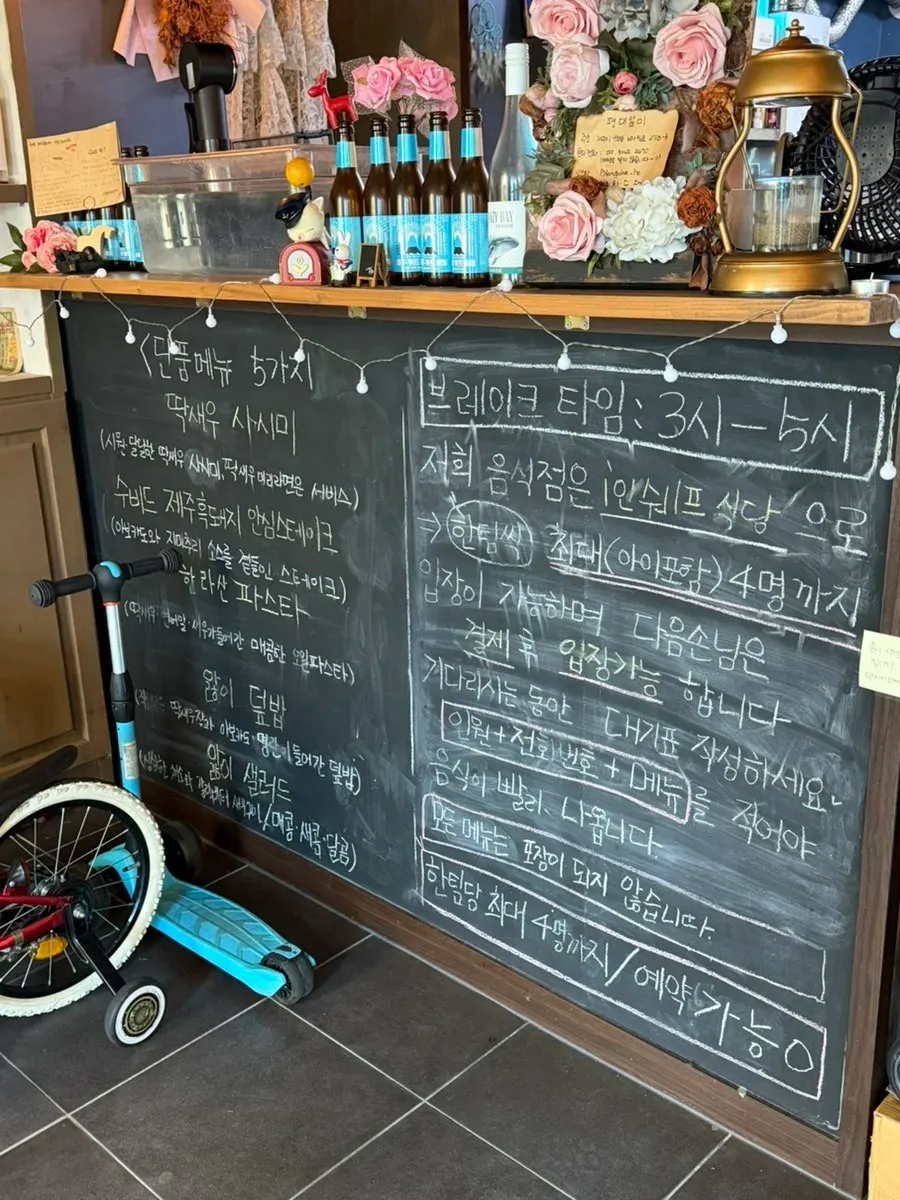 <단품메뉴 5가지
딱새우 사시미
(시원·달달한 딱새우 사시미, 딱새우 머리라면은 서비스)
수비드 제주흑돼지 안심스테이크
(아보카도와 치미추리 소스를 곁들인 스테이크)
한라산 파스타
(딱새우·새우가들어간 매콤한 오일파스타)
왊이 덮밥
딱새우장과 아보카도·명란이 들어간 덮밥)
샐러드
(싱싱한 채소와 /매콤·새콤·달콤)
브레이크 타임: 3시 - 5시
저희 음식점은 1인쉐프 식당 으로
→ 한팀씩 최대(아이포함) 4명까지
입장이 가능하며 다음손님은
결제 후 입장가능 합니다
기다리시는 동안 대기표 작성하세요~
인원+전화번호+메뉴를 적어야
음식이 빨리 나옵니다.
모든 메뉴는 포장이 되지 않습니다.
한팀당 최대 4명까지/예약가능O